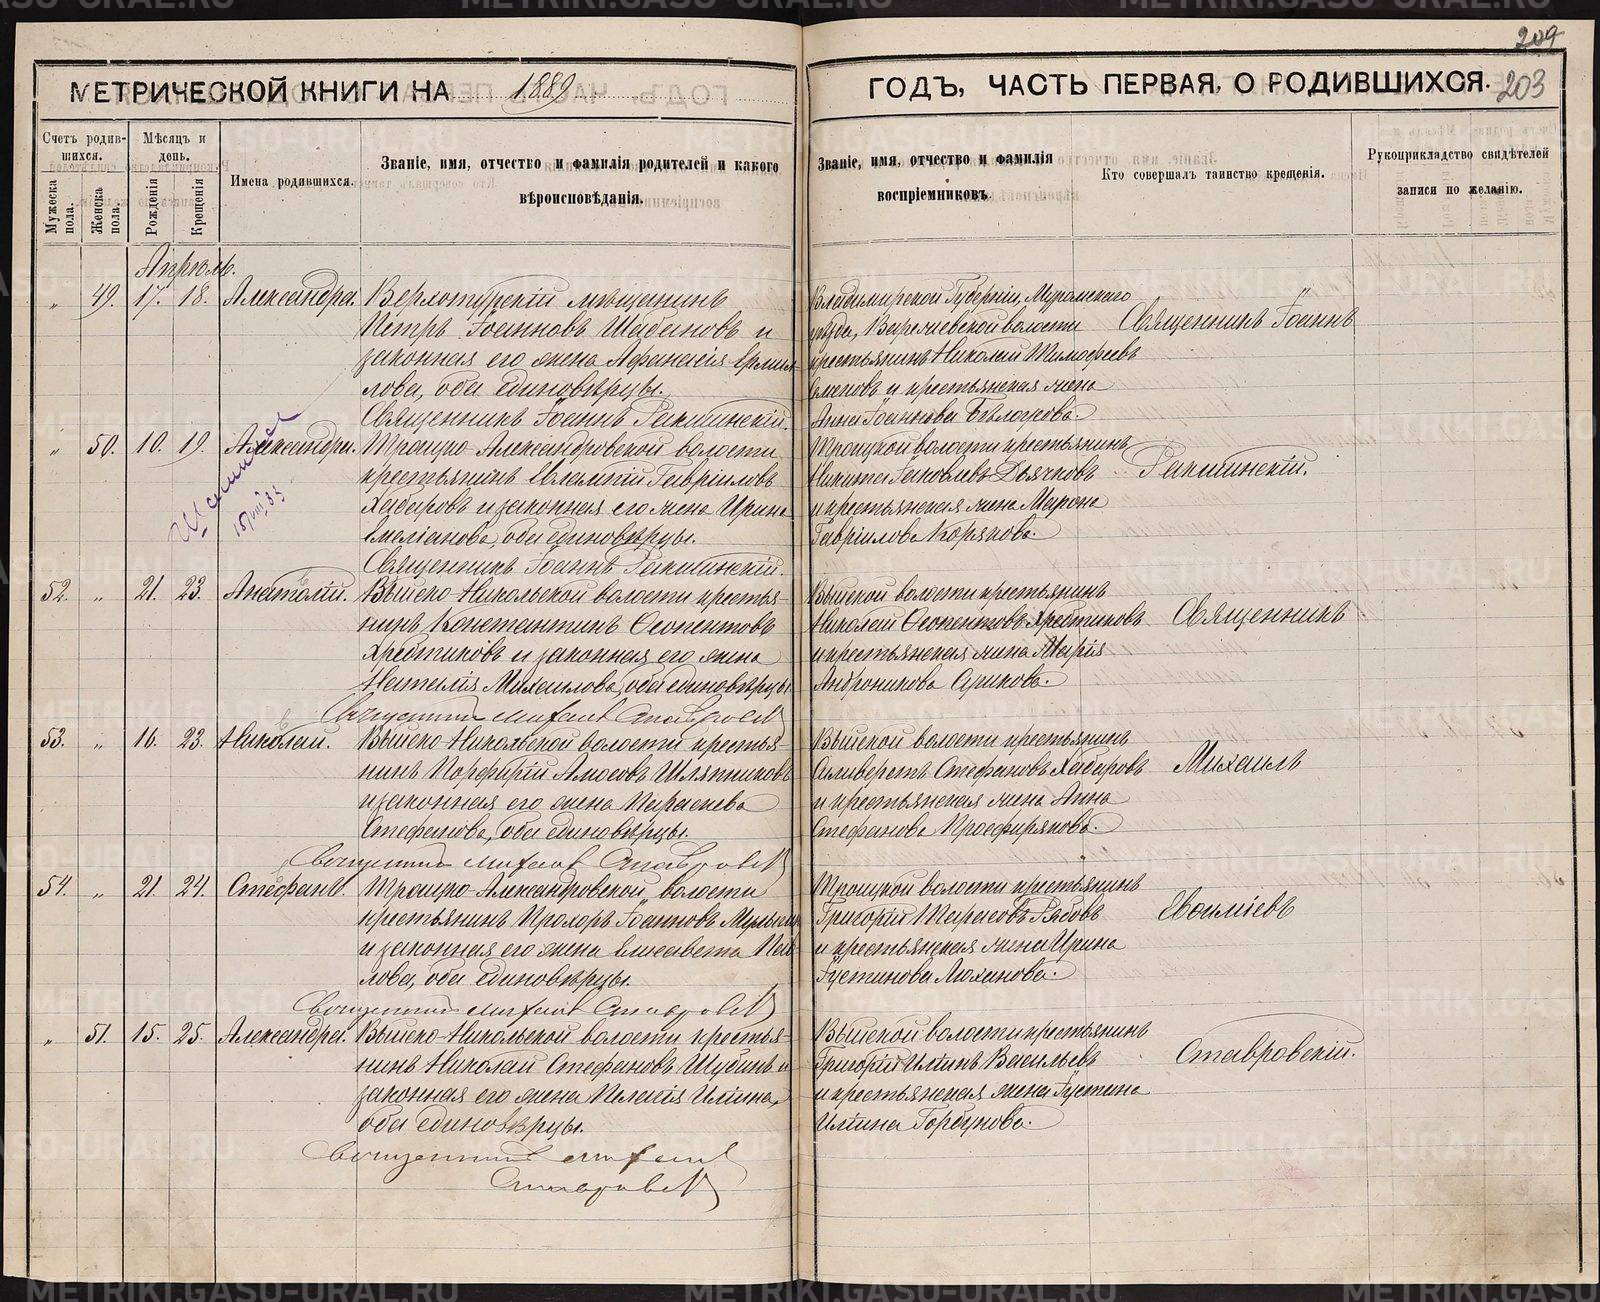 209
МЕТРИЧЕСКОЙ КНИГИ НА 1889
ГОДЪ, ЧАСТЬ ПЕРВАЯ, О РОДИВШИХСЯ.
203
Счетъ родив-
шихся.
Мѣсяцъ и
день.
Мужеска
пола.
Женска
пола.
Рожденія
Крещенія
Имена родившихся.
Званіе, имя, отчество и фамилія родителей и какого
вѣроисповѣданія.
Званіе, имя, отчество и фамилія
воспріемниковъ.
Кто совершалъ таинство крещенія.
Рукоприкладство свидѣтелей
записи по желанію.
Апрѣль.
„ 49. 17. 18. Александра.
Верхотурскій мѣщанинъ
Петръ Іоанновъ Шабановъ и
законная его жена Афанасія Ермил-
лова, оба единовѣрцы.
Священникъ Іоаннъ
Владимірской Губерніи, Муромскаго
уѣзда, волости
крестьянинъ Николай Тимофеевъ
и крестьянская жена
Анна Іоаннова
Священникъ Іоаннъ
„ 50. 10. 19. Александра.
Троицко-Александровской волости
крестьянинъ Евлампій Гавріиловъ
Хабаровъ и законная его жена Ирина
Емеліанова, оба единовѣрцы.
Священникъ Іоаннъ
Троицкой волости крестьянинъ
Никита Іаковлевъ Дьячковъ
и крестьянская жена
Гавріилова Корякова.
52. „ 21. 23. Анатолій.
Выйско-Никольской волости крестья-
нинъ Константинъ
и законная его жена
Наталія Михаилова, оба единовѣрцы.
Священникъ Михаилъ Ставровскій
Выйской волости крестьянинъ
Николай
и крестьянская жена Марія
Андроникова
Священникъ
53. „ 16. 23. Николай.
Выйско-Никольской волости крестья-
нинъ Порфирій Амосовъ Шляпниковъ
и законная его жена Параскева
Стефанова, оба единовѣрцы.
Священникъ Михаилъ Ставровскій
Выйской волости крестьянинъ
Силиверстъ Стефановъ Хабаровъ
и крестьянская жена Анна
Стефанова Просфирякова.
Михаилъ
54. „ 21. 24. Стефанъ.
Троицко-Александровской волости
крестьянинъ Прохоръ Іоанновъ
и законная его жена Елисавета Пав-
лова, оба единовѣрцы.
Священникъ Михаилъ Ставровскій
Троицкой волости крестьянинъ
Григорій Тарасовъ Рябовъ
и крестьянская жена Ирина
Іустинова
Евфиміевъ
„ 51. 15. 25. Александра.
Выйско-Никольской волости крестья-
нинъ Николай Стефановъ Шубинъ и
законная его жена Пелагія Иліина,
оба единовѣрцы.
Священникъ Михаилъ
Ставровскій
Выйской волости крестьянинъ
Григорій Иліинъ Васильевъ
и крестьянская жена Іустина
Иліина Горбунова.
Ставровскій.